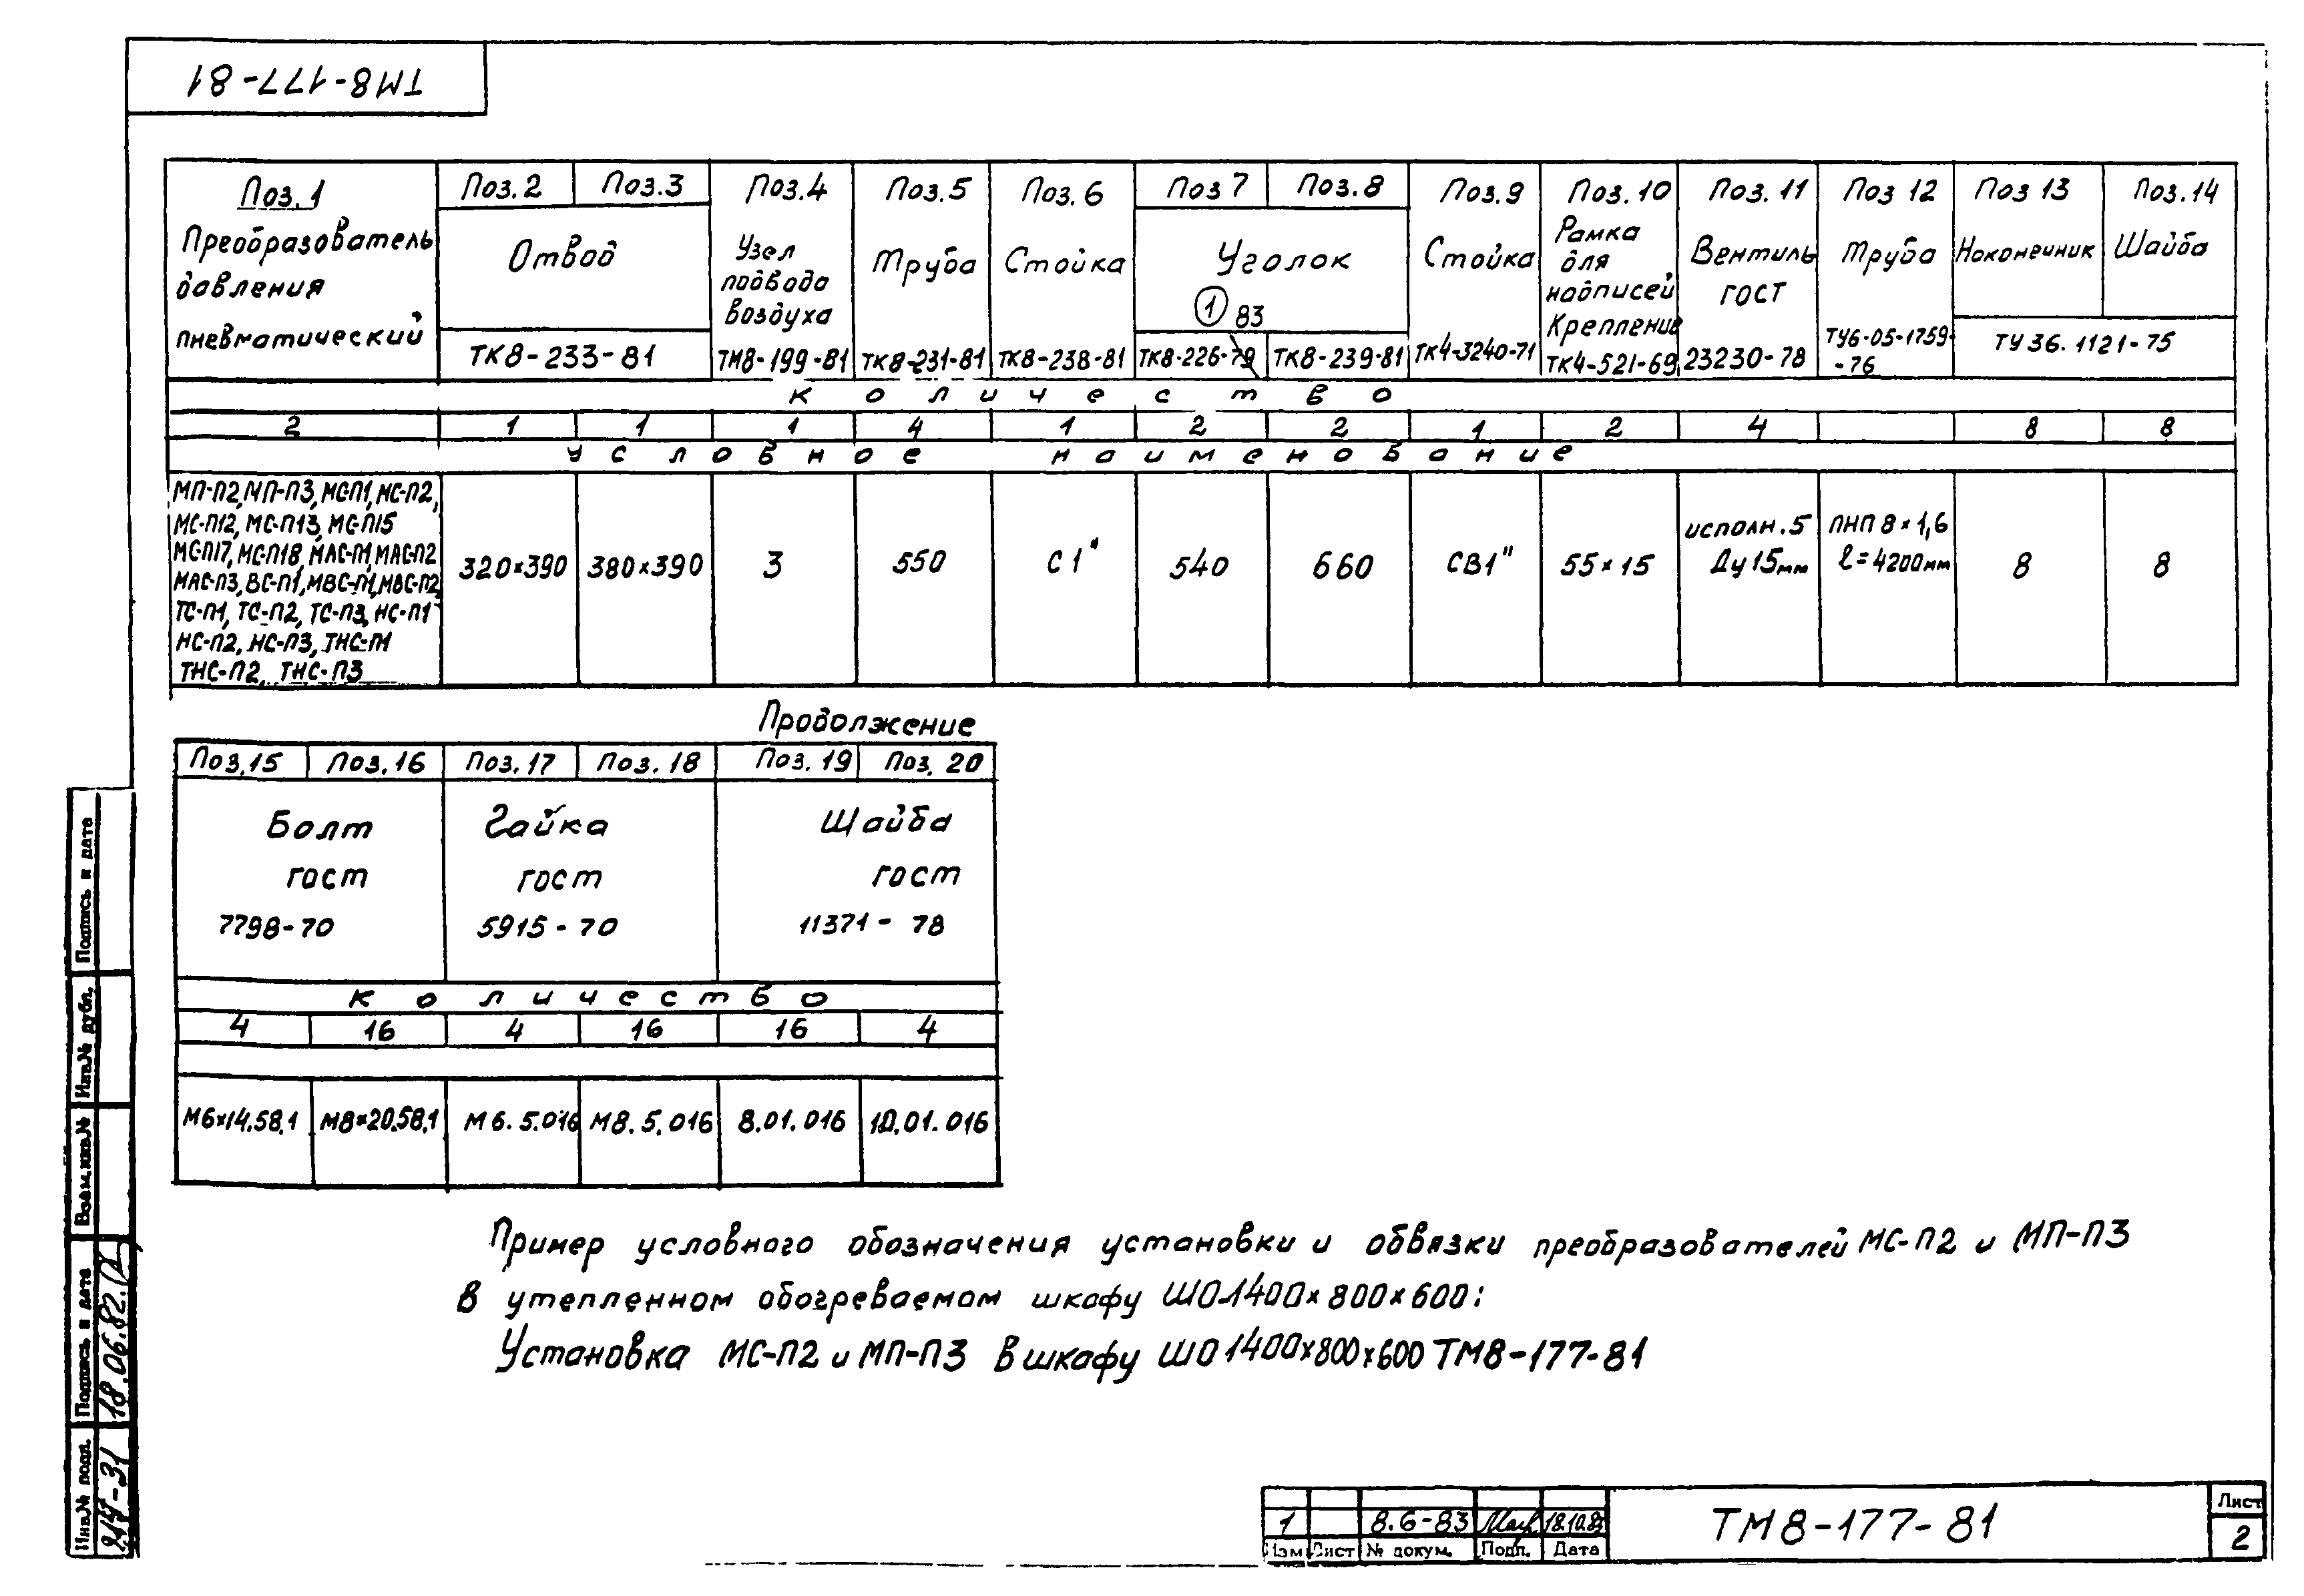 ТМ8-177-81
Поз.1 Поз.2 Поз.3 Поз.4 Поз.5 Поз.6 Поз 7 Поз.8 Поз.9 Поз.10 Поз.11 Поз 12 Поз 13 Поз.14
Преобразователь давления пневматический
Отвод
ТК8-233-81
Узел подвода воздуха
ТМ8-199-81
Труба
ТК8-231-81
Стойка
ТК8-238-81
Уголок
1 83
ТК8-226-79 ТК8-239-81
Стойка
ТК4-3240-71
Рамка для надписей
Крепление
ТК4-521-69
Вентиль
ГОСТ
23230-78
Труба
ТУ6-05-1759-
-76
Наконечник Шайба
ТУ 36.1121-75
количество
2 1 1 1 4 1 2 2 1 2 4 8 8
условное наименование
МП-П2, МП-П3, МС-П1, МС-П2,
МС-П12, МС-П13, МС-П15
МС-П17, МС-П18, МАС-П1, МАС-П2
МАС-П3, ВС-П1, МВС-П1, МВС-П2,
ТС-П1, ТС-П2, ТС-П3, НС-П1
НС-П2, НС-П3, ТНС-П1
ТНС-П2, ТНС-П3
320×390 380×390 3 550 С1" 540 660 СВ1" 55×15
исполн.5
Ду 15мм
ПНП 8×1,6
ℓ=4200мм
8 8
Продолжение
Поз.15 Поз.16 Поз.17 Поз.18 Поз.19 Поз.20
Болт Гайка Шайба
гост гост гост
7798-70 5915-70 11371-78
количество
4 16 4 16 16 4
М6×14.58.1 М8×20.58.1 М6.5.016 М8.5.016 8.01.016 10.01.016
Пример условного обозначения установки и обвязки преобразователей МС-П2 и МП-П3
в утепленном обогреваемом шкафу ШО-1400×800×600:
Установка МС-П2 и МП-П3 в шкафу ШО 1400×800×600 ТМ8-177-81
Подпись и дата
Инв.№ дубл.
Взам.инв.№
Подпись и дата
18.06.82
Инв.№ подл.
1 8.6-83 18.10.83
Изм Лист № докум. Подп. Дата
ТМ8-177-81
Лист
2